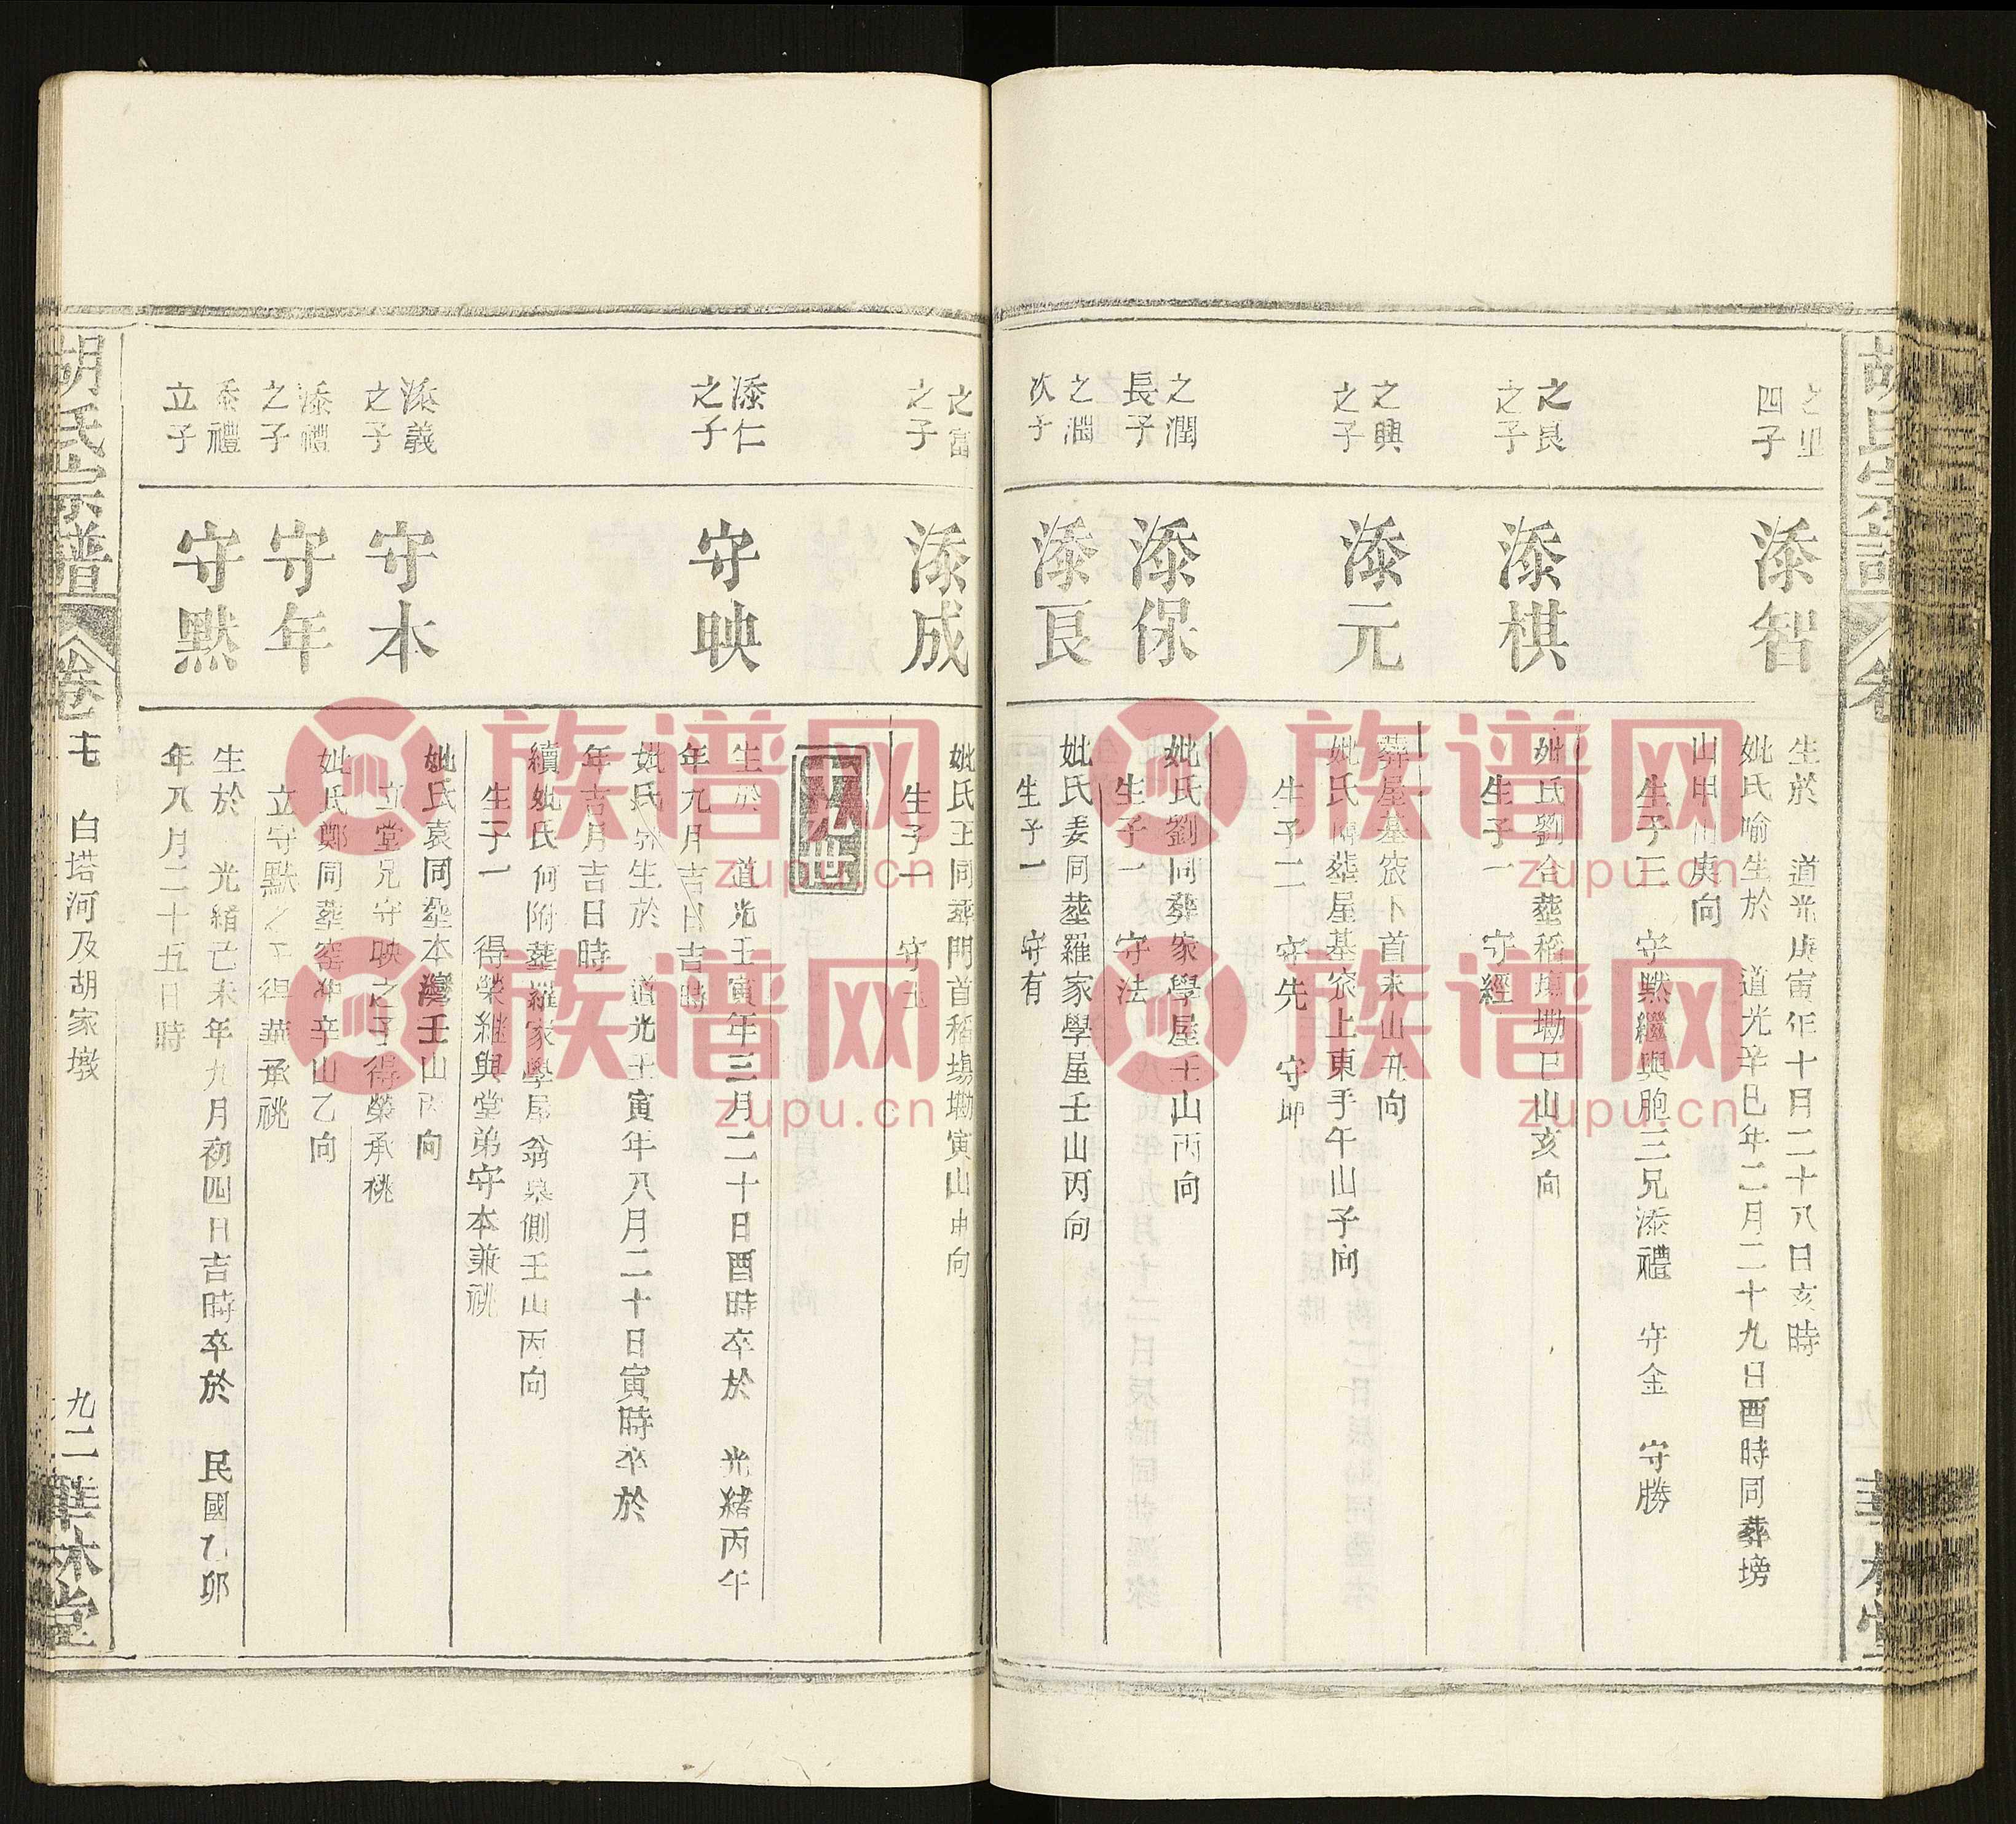 胡氏宗譜
華林堂
四子
添智
生於 道光庚寅年十月二十八日亥時
妣氏喻生於 道光辛巳年二月二十九日酉時同葬塝
山甲山庚向
生子三 守默繼與胞三兄添禮 守金 守勝
之良
之子
添棋
妣氏劉合塟稻塲墈巳山亥向
生子一 守經
之興
之子
添元
葬屋基窊卜首未山丑向
妣氏 塟屋基窊上東手午山子向
生子二 守先 守
之潤
長子
添保
妣氏劉同葬家學屋壬山丙向
生子一 守法
之潤
次子
添良
妣氏姜同塟羅家學屋壬山丙向
生子一 守有
之富
之子
添成
妣氏王同葬門首稻場墈寅山申向
生子一 守玉
世
添仁
之子
守映
生於 道光壬寅年三月二十日酉時卒於 光緒丙午
年九月吉日吉時
妣氏 生於 道光壬寅年八月二十日寅時卒於
年吉月吉日時
續妣氏何附塟羅家學屋翁泉側壬山丙向
生子一 得榮継與堂弟守本兼祧
添義
之子
守本
妣氏袁同塟本灣壬山丙向
立堂兄守映之子得榮承祧
添禮
之子
守年
妣氏鄭同塟窑冲辛山乙向
立守默之子得華承祧
添禮
立子
守默
生於 光緒己未年九月初四日吉時卒於 民國乙卯
年八月二十五日時
胡氏宗譜
卷十七 白塔河及胡家墩
九二
華林堂
族谱网
zupu.cn
族谱网
zupu.cn
族谱网
zupu.cn
族谱网
zupu.cn